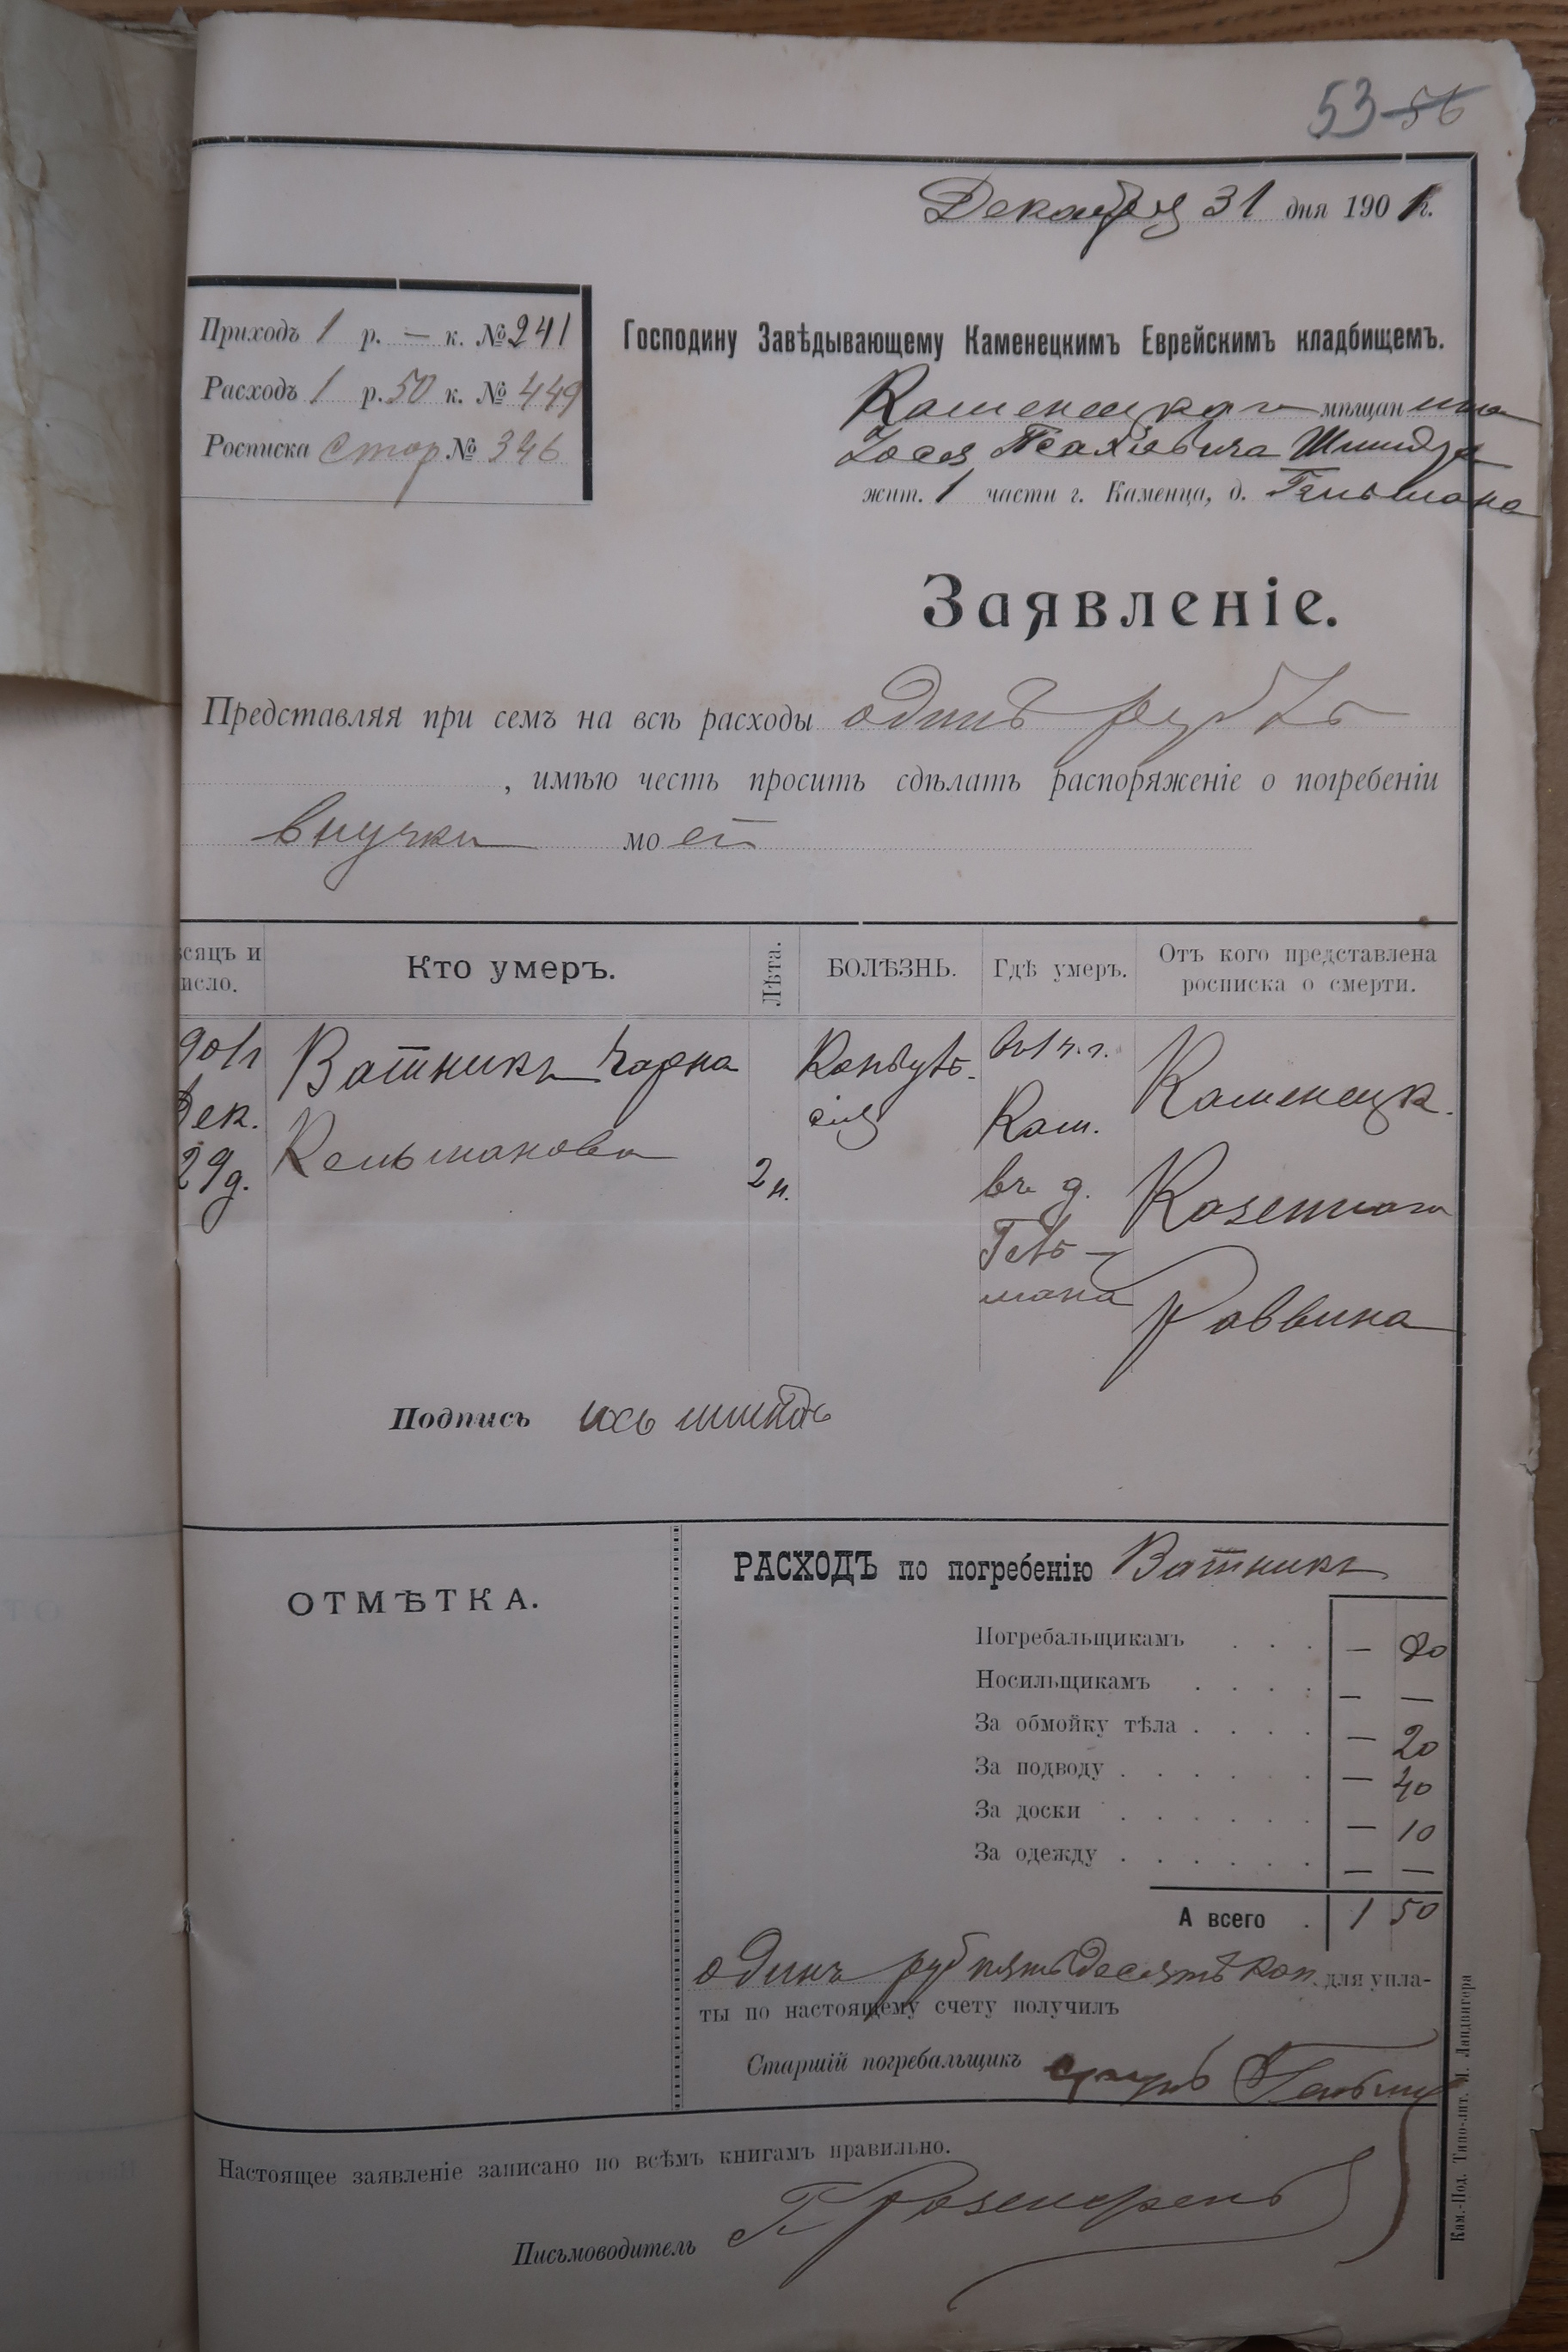 53 56
Декабря 31 дня 1901 г.
Приходъ 1 р. — к. № 241
Расходъ 1 р. 50 к. № 449
Росписка Стор № 346
Господину Завѣдывающему Каменецкимъ Еврейскимъ кладбищемъ.
Каменецкаго мѣщанина
Іося Шмидта
жит. 1 части г. Каменца, д. Гельмана
Заявленіе.
Представляя при семъ на всѣ расходы одинъ рубль
, имѣю честь просить сдѣлать распоряженіе о погребеніи
внучки моей
сяцъ и
исло.
Кто умеръ.
Лѣта.
БОЛѢЗНЬ.
Гдѣ умеръ.
Отъ кого представлена
росписка о смерти.
901 г
Дек.
29 д.
Ватникъ Чарна
Кельманова
2 н.
Конвуль-
сія
въ 1 ч. г.
Кам.
въ д.
Гель-
мана
Каменецк.
Казеннаго
Раввина
Подпись ись шмидъ
ОТМѢТКА.
РАСХОДЪ по погребенію Ватникъ
Погребальщикамъ . . . — 80
Носильщикамъ . . . . — —
За обмойку тѣла . . . . — 20
За подводу . . . . . . — 40
За доски . . . . . . — 10
За одежду . . . . . . — —
А всего . 1 50
одинъ руб пятьдесятъ коп. для упла-
ты по настоящему счету получилъ
Старшій погребальщикъ
Настоящее заявленіе записано по всѣмъ книгамъ правильно.
Письмоводитель
Кам.-Под. Типо-лит. И. Ландвигера